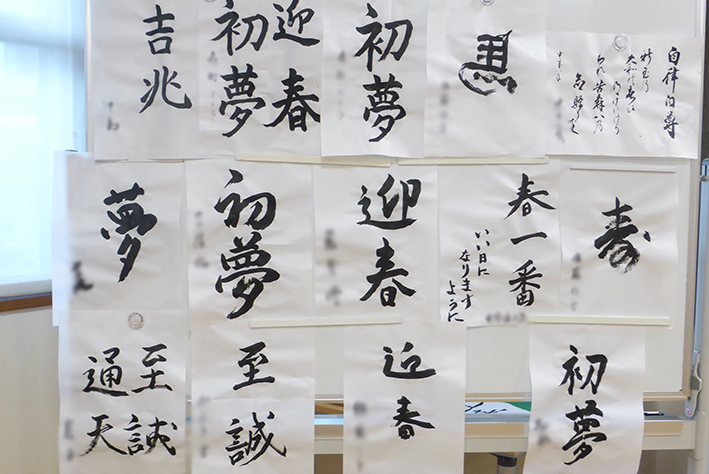 吉兆
迎春
初夢
初夢
馬
自律自尊
夢
初夢
迎春
春一番
いい日に
なります
ように
寿
至誠
通天
至誠
迎春
初夢